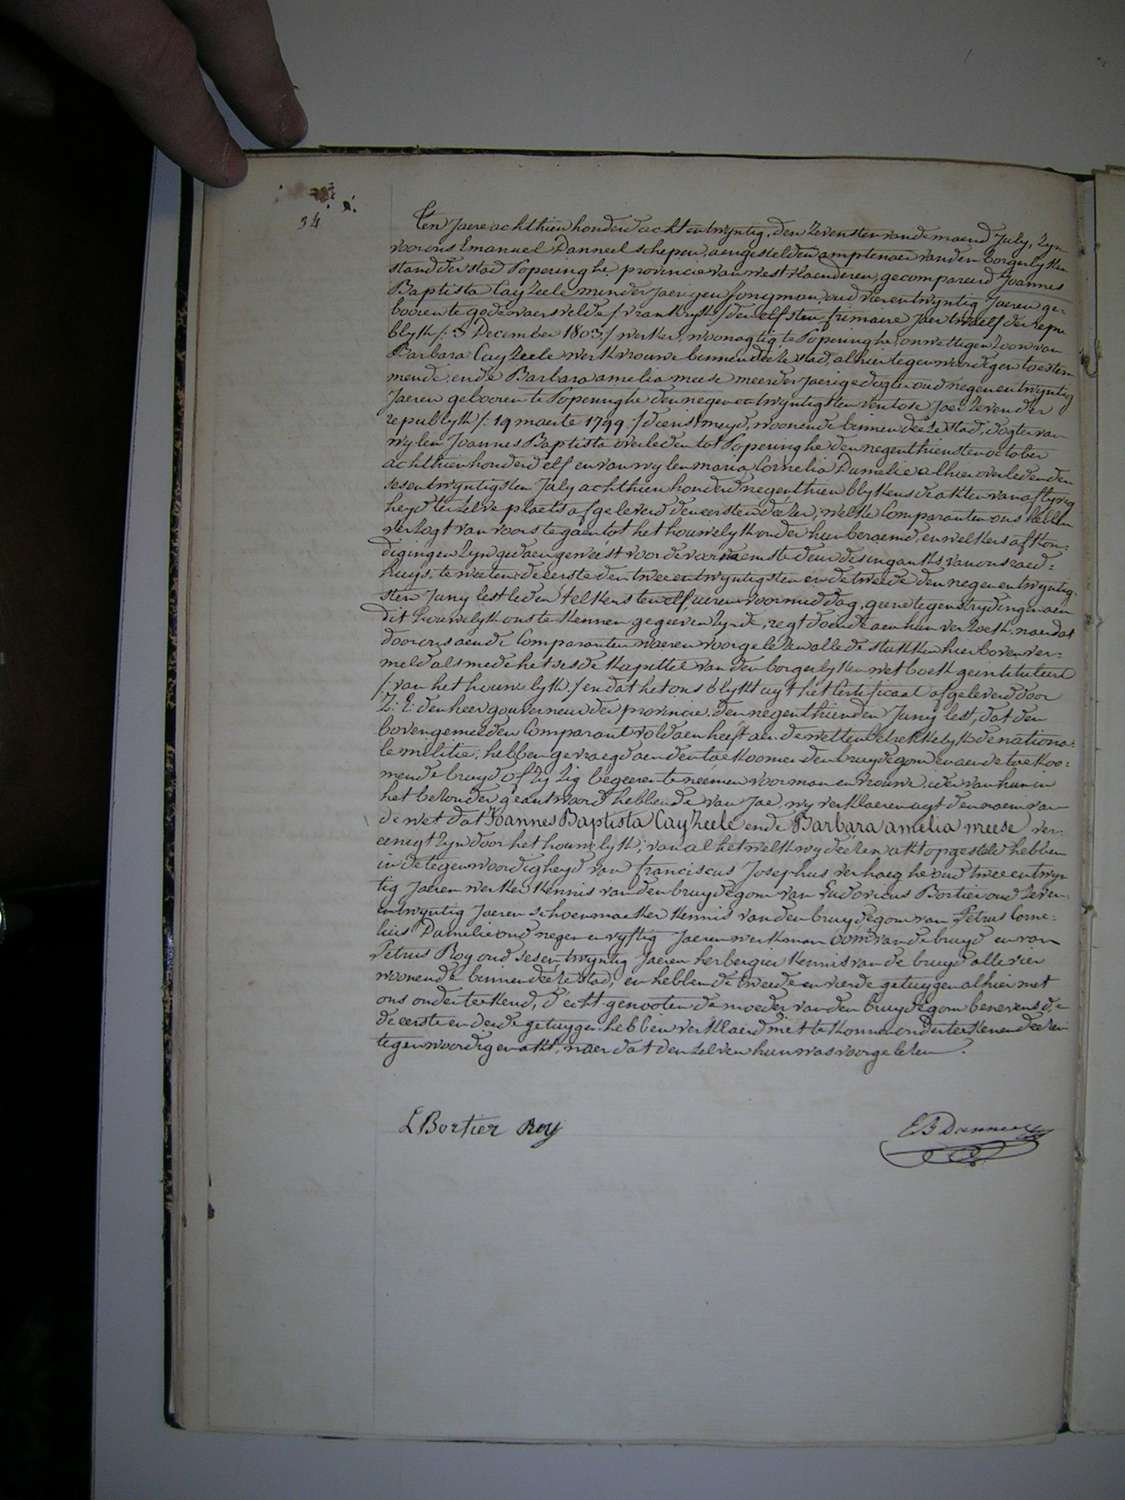 34
Ten Jaere achthien honderd acht en twyntig, den zevensten van de maend July, zyn
voor ons Emanuel Danneel schepen, aengestelden amptenaer van den borgerlyken
stand der stad Poperinghe provincie van west vlaenderen, gecompareerd Joannes
Baptista Cayzeele minderjaerigen Jongman, oud vier en twyntig Jaeren ge-
booren te godewaersvelde /vrankryk/ den elfsten frimaire Jaer twaelf der repu-
blyk /: 3 December 1803 :/ werker, woonagtig te Poperinghe, onwettigen zoon van
Barbara Cayzeele werkvrouwe binnen deeze stad, alhier tegenwoordig en toestem-
mende, ende Barbara amelia meese meerderjaerige dogter oud negen en twyntig
Jaeren gebooren te Poperinghe den negen en twyntigsten ventose Jaer zeven der
republyk /: 19 maerte 1799 :/ dienstmeyd, woonende binnen deeze stad, dogter van
wylen Joannes Baptista overleden tot Poperinghe den negenthiensten october
achthien honderd elf en van wylen maria Cornelia Damelie alhier overleden den
sesentwyntigsten July achthien honderd negenthien blykens de akten van aflyvig-
heyd ter zelve plaets afgeleverd den eersten deezer, welke Comparanten ons hebben
verzogt van voorts te gaen tot het houwelyk onder hun beraemd, en welkers afkon-
digingen zyn gedaen geweest voor de voornaemste deur des ingangs van ons raed-
huys, te weeten: de eerste den twee en twyntigsten en de tweede den negen en twyntig-
sten Juny lestleden telkens ten elf ueren voormiddag, geene tegenstrydingen aen
dit houwelyk ons te kennen gegeeven zynde, regt doende aen hun verzoek, naer dat
door ons aen de Comparanten waeren voorgelezen alle de stukken hier boven ver-
meld als mede het sesde kapittel van den borgerlyken wetboek geintituleerd
/: van het houwelyk :/ en dat het ons blykt uyt het Certificaet afgeleverd door
Z: E: den heer gouverneur der provincie, den negenthienden Juny lest, dat den
bovengemelden Comparant voldaen heeft aen de wetten betrekkelyk de nationa-
le militie; hebben gevraegd aen den toekomenden bruydegom en aen de toekoo-
mende bruyd of zy zig begeeren te neemen voor man en vrouwe, ider van hun in
het bezonder geantwoord hebbende van Jae, wy verklaeren uyt den naem van
de wet dat Joannes Baptista Cayzeele ende Barbara amelia meese ver-
eenigt zyn door het houwelyk; van al het welk wy deezen akt opgesteld hebben
in de tegenwoordigheyd van franciscus Josephus verhaeghe oud twee en twyn-
tig Jaeren werker kennis van den bruydegom van Ludovicus Bortier oud zeven-
entwyntig Jaeren schoenmaeker kennis van den bruydegom van Petrus Corne-
lius Damelie oud negen en vyftig Jaeren werkman oom van de bruyd en van
Petrus Roy oud sesentwyntig Jaeren herbergier kennis van de bruyd alle vier
woonende binnen deeze stad, en hebben de tweede en vierde getuygen alhier met
ons onderteekend, d'echtgenooten de moeder van den bruydegom benevens de
de eerste en derde getuygen hebben verklaerd niet te konnen onderteekenen deezen
tegenwoordigen akt, naer dat den zelven hun was voorgelezen.
L Bortier Roy
E B Danneel